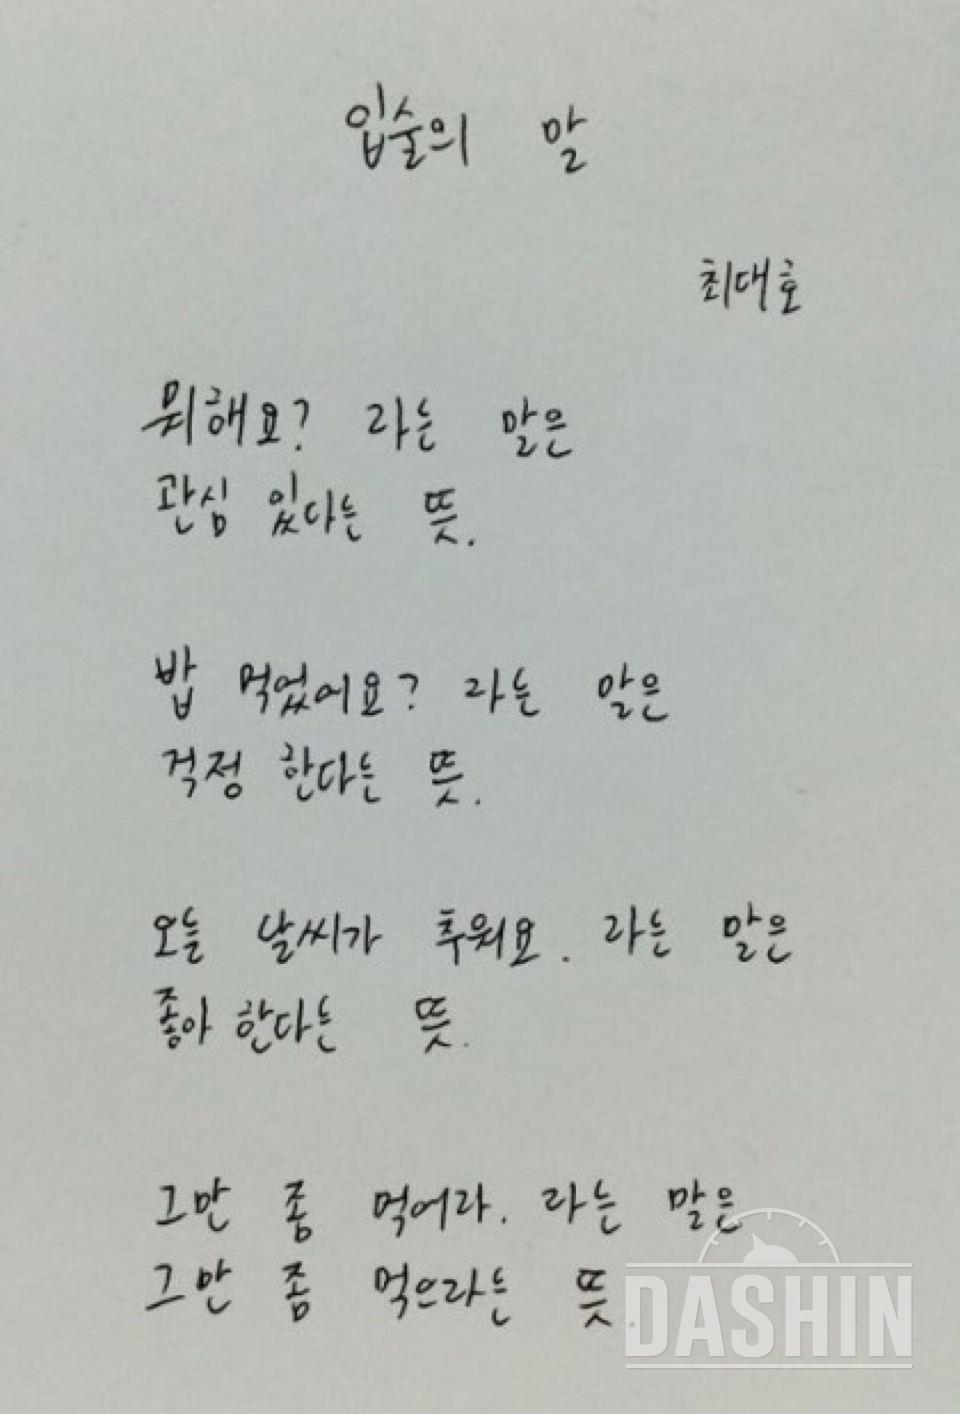 입술의 말
최대호
뭐해요? 라는 말은
관심 있다는 뜻.
밥 먹었어요? 라는 말은
걱정 한다는 뜻.
오늘 날씨가 추워요. 라는 말은
좋아 한다는 뜻.
그만 좀 먹어라. 라는 말은
그만 좀 먹으라는 뜻.
DASHIN